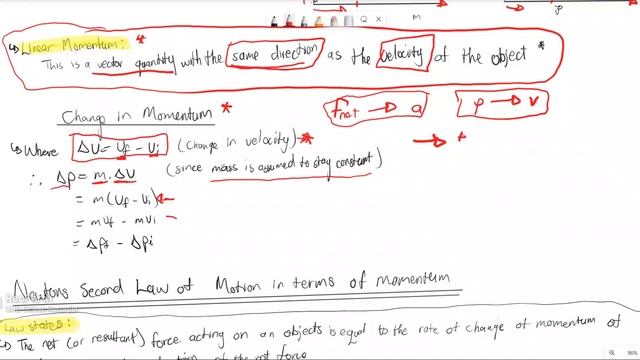 m
p
↳ Linear Momentum: *
This is a vector quantity with the same direction as the velocity of the object *
Change in Momentum *
Fnet → a
p → v
↳ Where ΔV = Vf - Vi (change in velocity) *
→ +
∴ Δp = m.ΔV (since mass is assumed to stay constant)
= m(Vf - Vi)
= mVf - mVi
= Δpf - Δpi
Newtons Second Law of Motion in terms of momentum
Law states:
↳ The net (or resultant) force acting on an objects is equal to the rate of change of momentum of
of the net force
96%